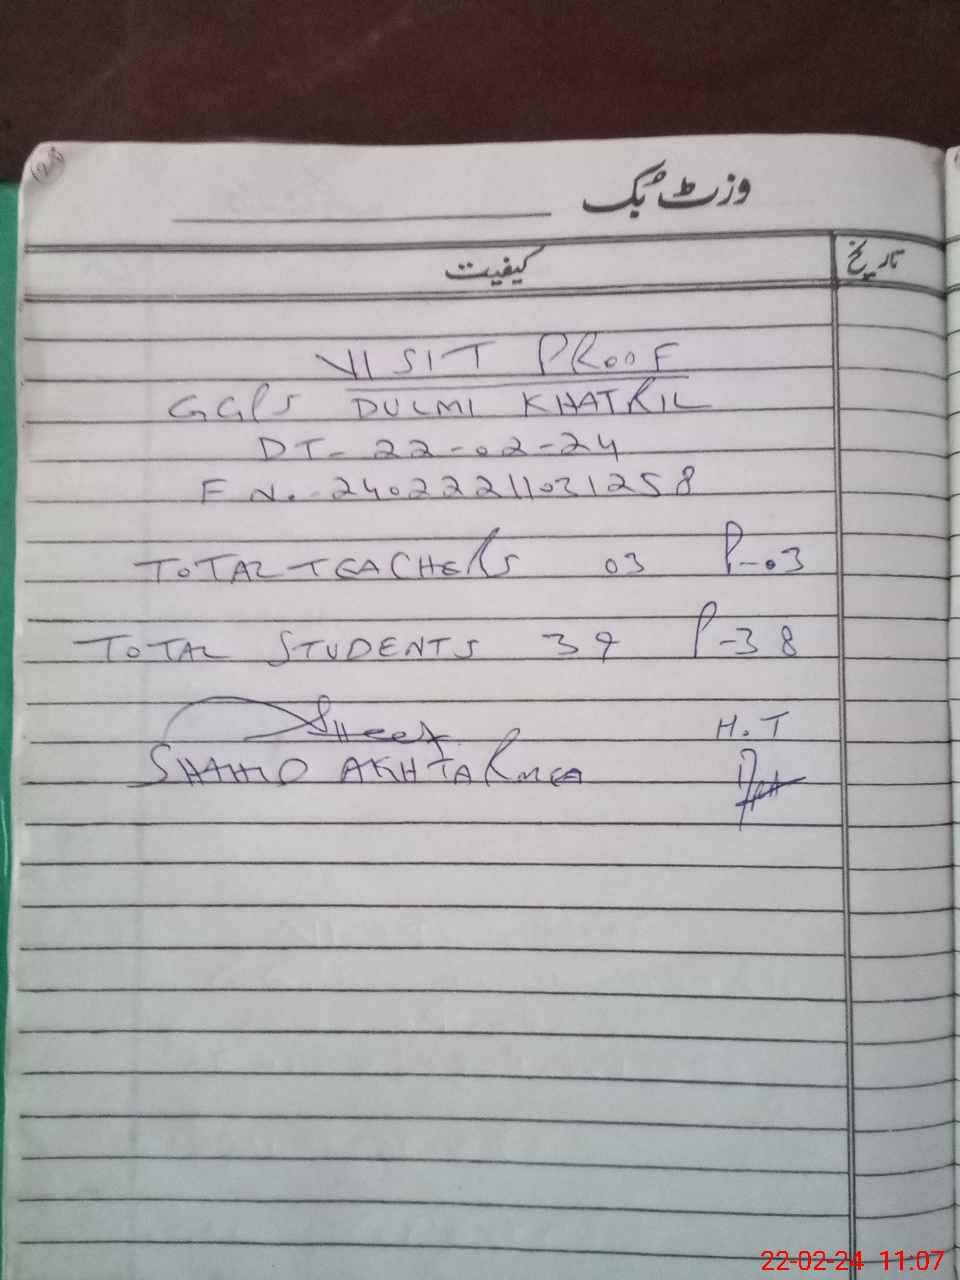 وزٹ بُک
کیفیت
تاریخ
VISIT PROOF
GGPS DULMI KHATRIL
DT- 22-02-24
F No. 24022211031258
TOTAL TEACHERS 03 P-03
TOTAL STUDENTS 39 P-38
H.T
SHAHID AKHTAR MEA
22-02-24 11:07